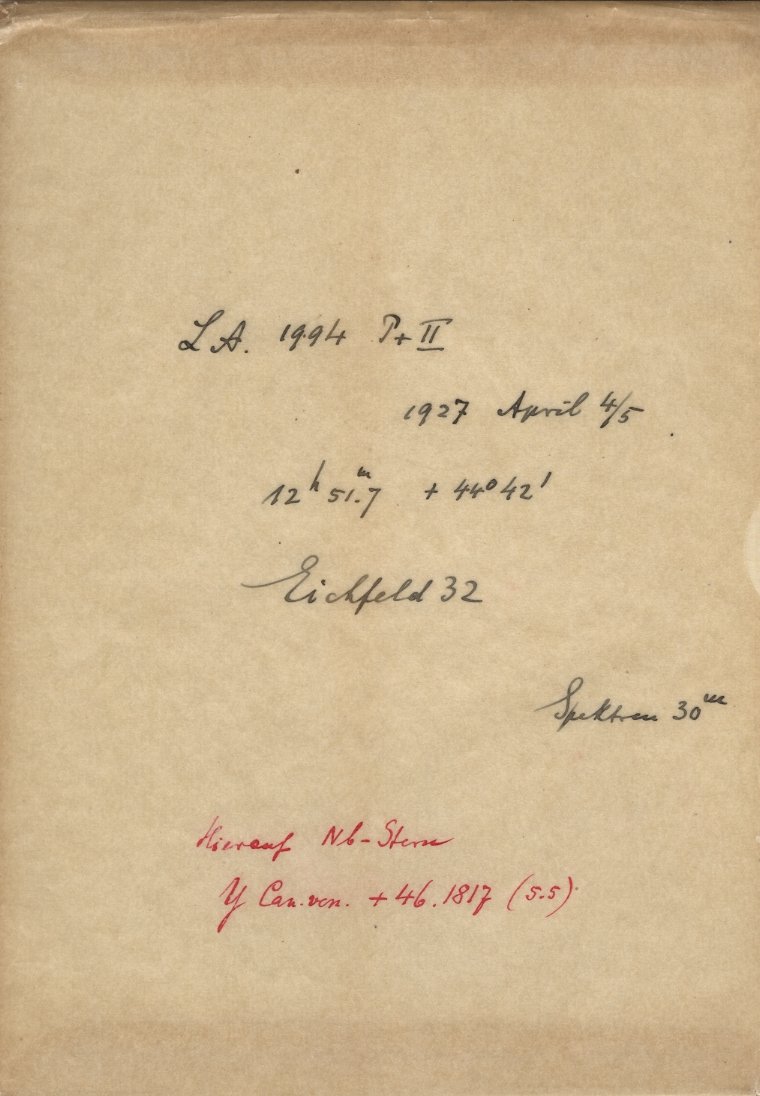 L A. 1994 I + II
1927 April 4/5
12ʰ 51.ᵐ7 + 44° 42'
Eichfeld 32
Spektren 30ᵐ
Hierauf Nb-Stern
Y Can. ven. + 46.1817 (5.5)